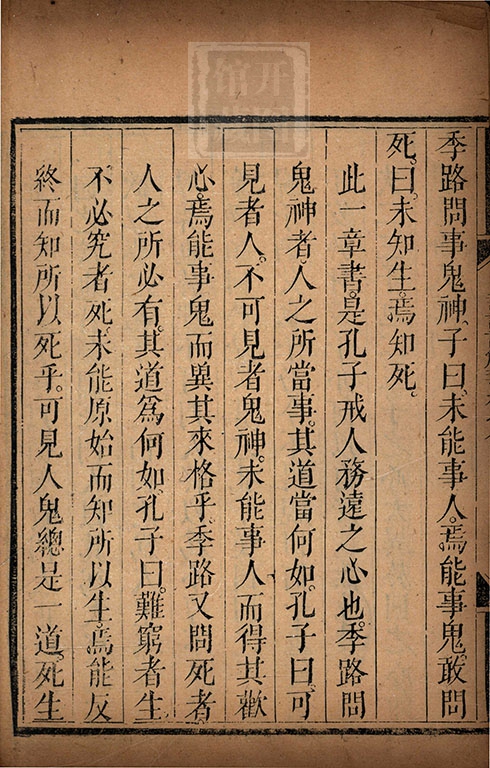 季路問事鬼神。子曰。未能事人。焉能事鬼。敢問
死。曰。未知生。焉知死。
此一章書。是孔子戒人務遠之心也。季路問
鬼神者。人之所當事。其道當何如。孔子曰。可
見者人。不可見者鬼神。未能事人而得其歡
心。焉能事鬼而異其來格乎。季路又問死者
人之所必有。其道為何如。孔子曰。難窮者生。
不必究者死。未能原始而知所以生。焉能反
終而知所以死乎。可見人鬼總是一道。死生